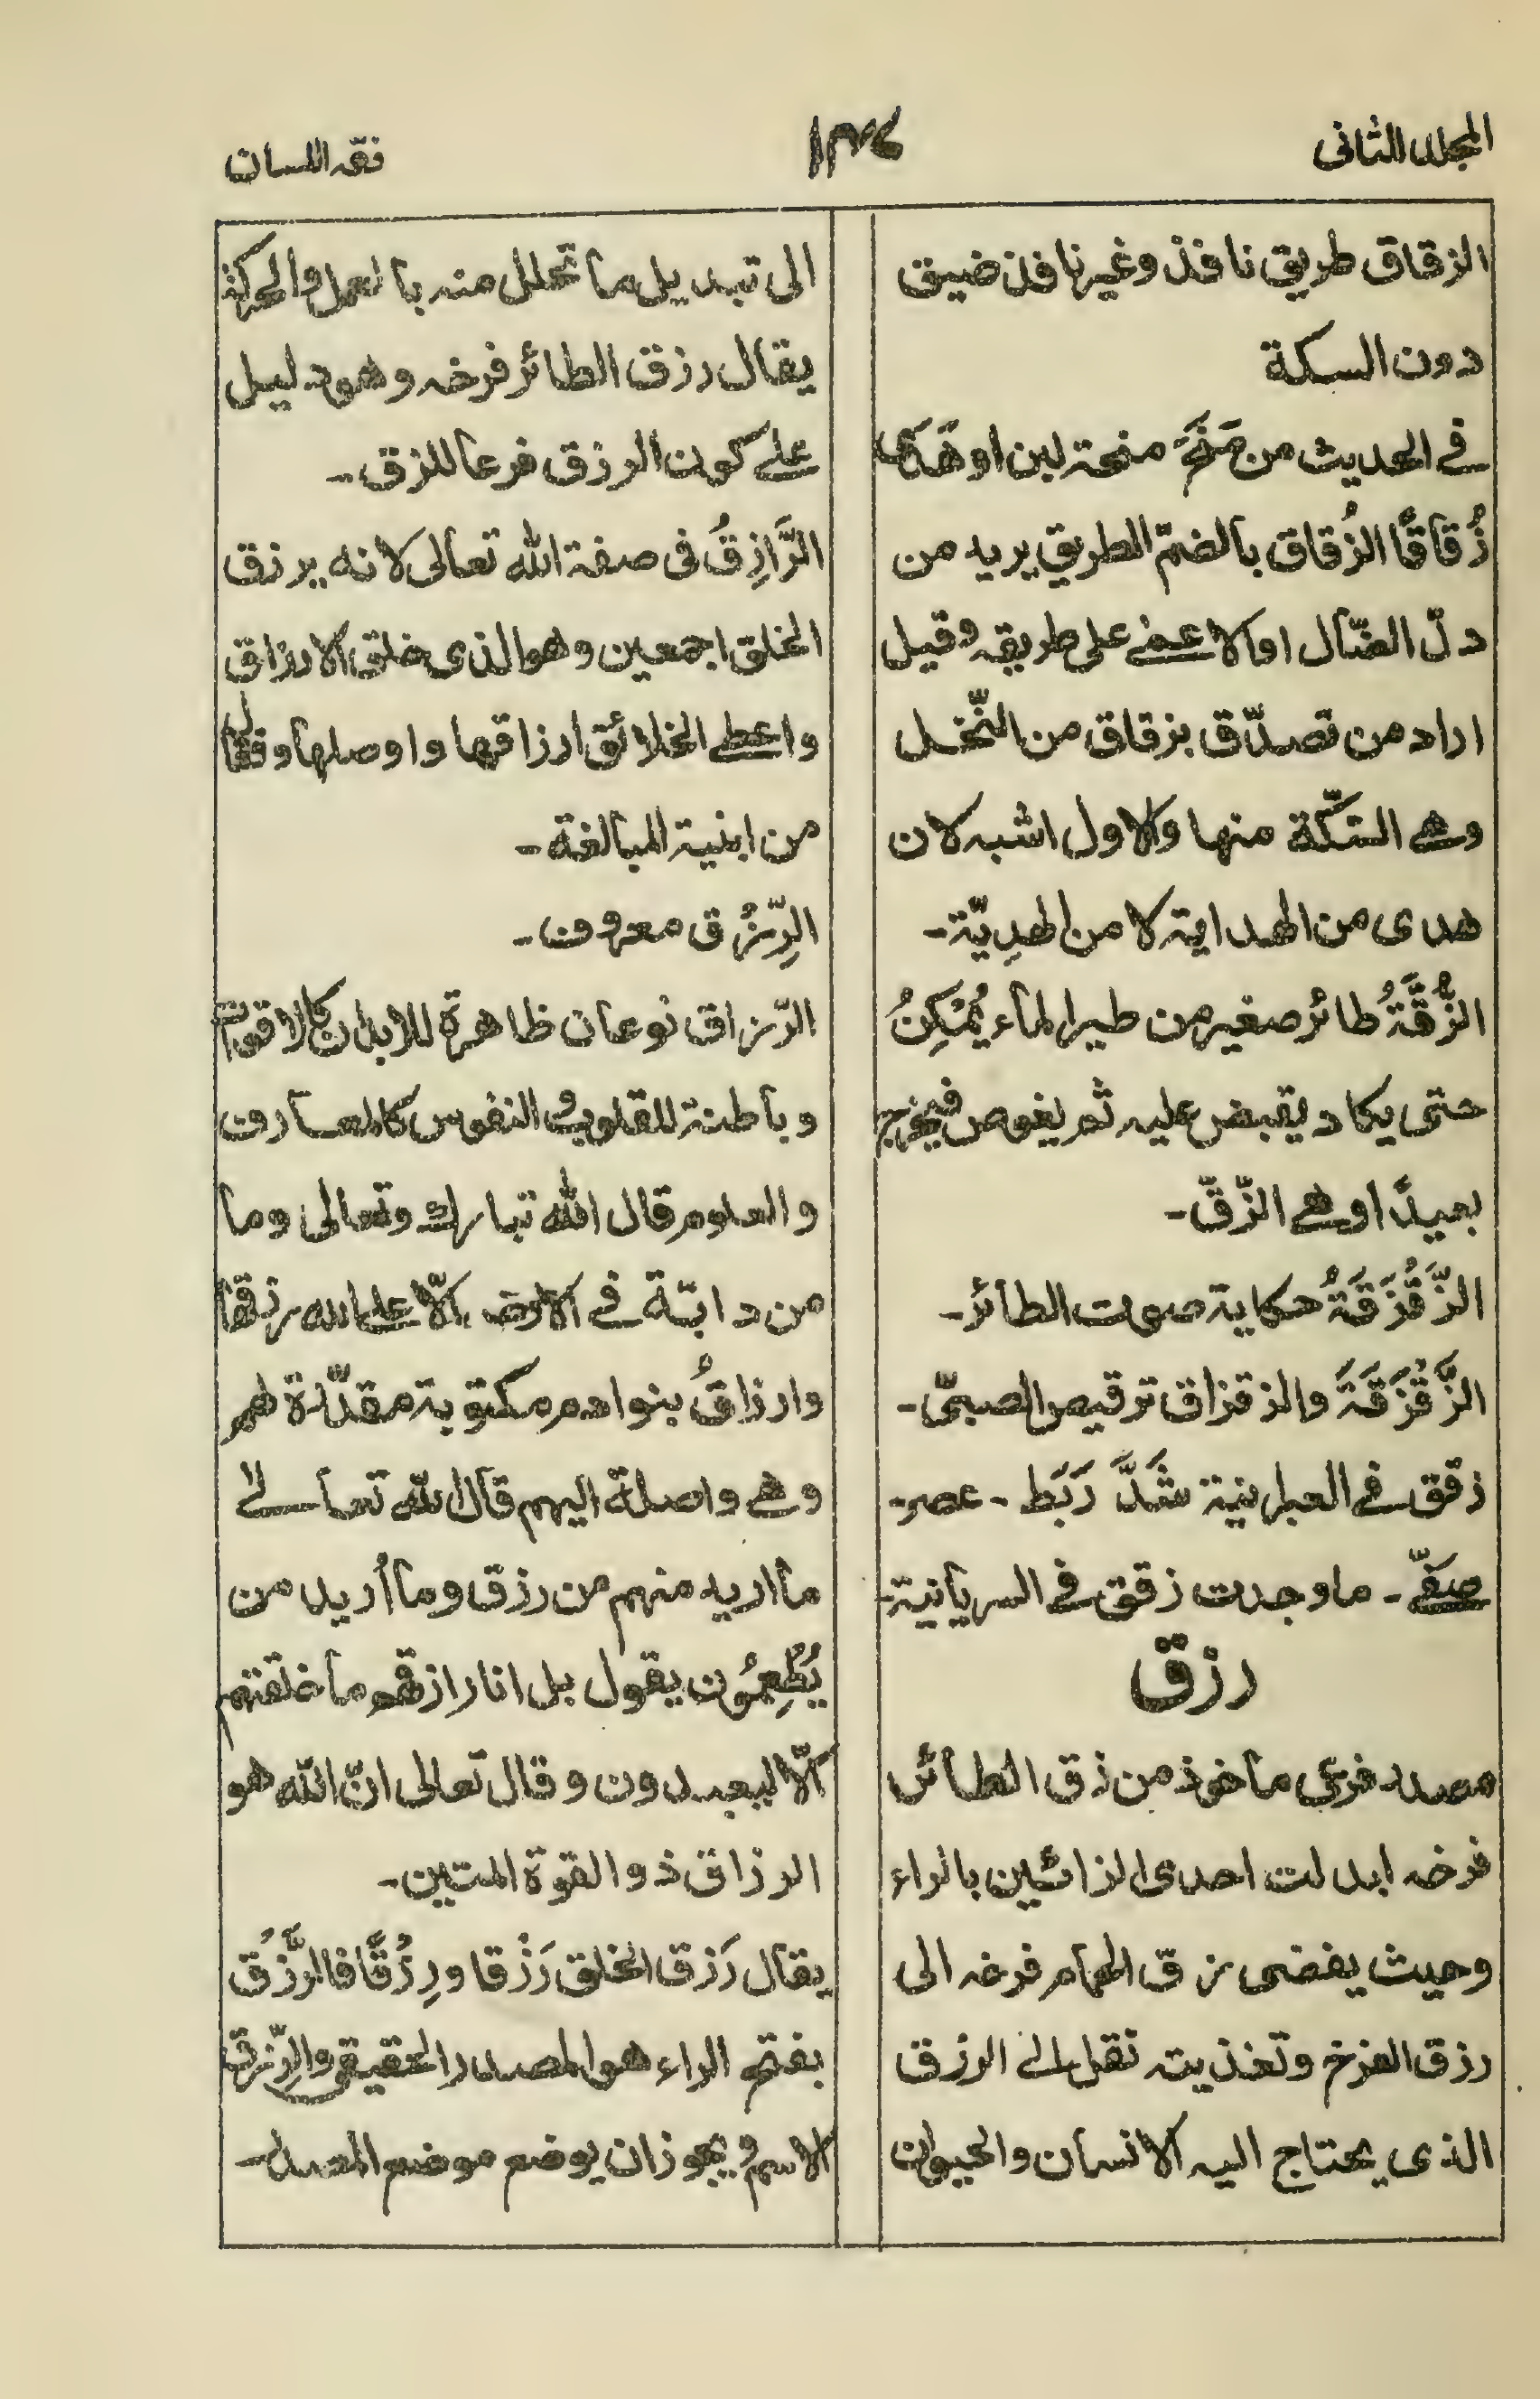 المجلد الثانى
فقه اللسان
الزقاق طريق نافذ وغير نافذ ضيق
دون السكة
فى الحديث من مَنَحَ منحة لبن او هَدَى
زُقاقًا الزُقاق بالضمّ الطريق يريد من
دلّ الضّال او الاعمى على طريقه وقيل
اراد من تصدّق بزقاق من النّخل
وهى السّكّة منها والاول اشبه لان
هدى من الهداية لا من الهدِيّة -
الزُّقَّةُ طائر صغير من طير الماء يُمْكِنُ
حتى يكاد يقبض عليه ثم يغوص فيخرج
بعيدًا وهى الزّقّ -
الزَّقْزَقَةُ حكاية صوت الطائر -
الزَّقْزَقَةَ والزقزاق ترقيص الصبىّ -
زقق فى العبرانية شَدَّ رَبَط - عصر -
صفّى - ما وجدت زقق فى السريانية -
رزق
مصدر فرعى ماخوذ من زق الطائر
فرخه ابدلت احدى الزائين بالراء
وحيث يفضى زق الحمام فرخه الى
رزق الفرخ وتغذيته نقل الى الرزق
الذى يحتاج اليه الانسان والحيوان
الى تبديل ما تحلل منه بالعمل والحركة
يقال رزق الطائر فرخه وهو دليل
على كون الرزق فرعا للزق -
الرَّازِقُ فى صفة الله تعالى لانه يرزق
الخلق اجمعين وهو الذى خلق الارزاق
واعطى الخلائق ارزاقها واوصلها
من ابنية المبالغة -
الرِّزْق معروف -
الرّزاق نوعان ظاهرة للابدان كالاقوات
وباطنة للقلوب والنفوس كالمعارف
والعلوم قال الله تبارك وتعالى وما
من دابّة فى الارض الّا على الله رزقها
وارزاقُ بنو ادم مكتوبة مقدّرة لهم
وهى واصلة اليهم قال الله تعالى
ما اريد منهم من رزق وما أريد من
يُطْعِمُون يقول بل انا رازقهم ما خلقتهم
الّا ليعبدون وقال تعالى انّ الله هو
الرزاق ذو القوة المتين -
يقال رَزق الخلق رَزْقا ورِزْقًا فالرَّزْق
بفتح الراء هو المصدر الحقيقى والرِّزق
الاسم ويجوز ان يوضع موضع المصدر -